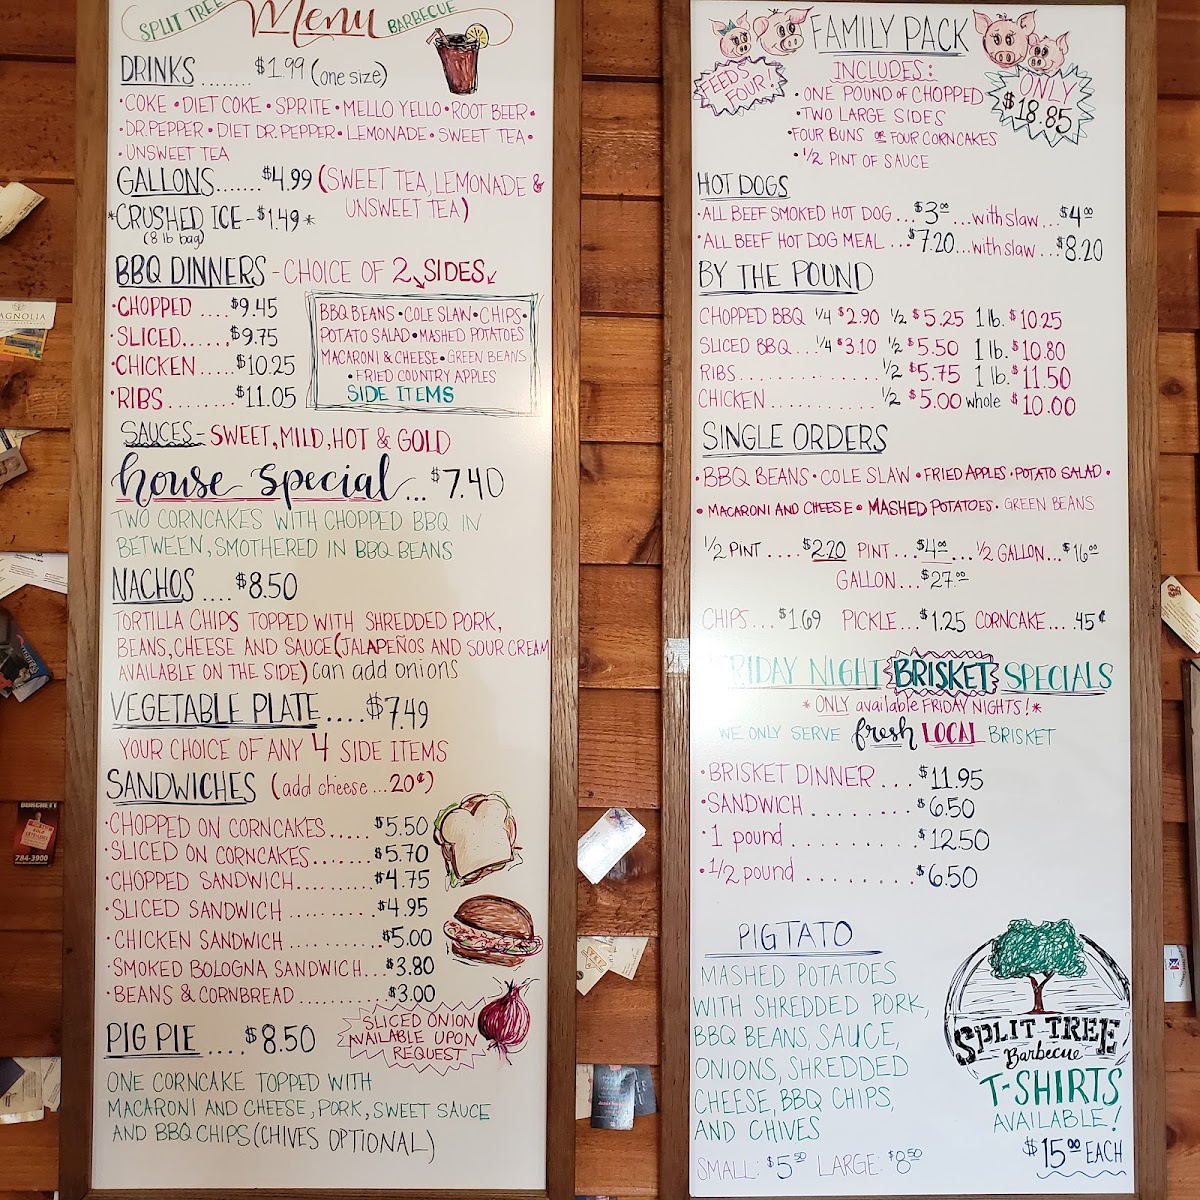 SPLIT TREE Menu BARBECUE
DRINKS ........ $1.99 (one size)
•COKE •DIET COKE •SPRITE •MELLO YELLO •ROOT BEER•
•DR. PEPPER •DIET DR. PEPPER •LEMONADE •SWEET TEA•
•UNSWEET TEA
GALLONS.......$4.99 (SWEET TEA, LEMONADE &
UNSWEET TEA)
*CRUSHED ICE - $1.49*
(8 lb bag)
BBQ DINNERS - CHOICE OF 2 SIDES
•CHOPPED ....$9.45
•SLICED......$9.75
•CHICKEN.....$10.25
•RIBS........$11.05
BBQ BEANS •COLE SLAW •CHIPS•
POTATO SALAD •MASHED POTATOES
MACARONI & CHEESE •GREEN BEANS
•FRIED COUNTRY APPLES
SIDE ITEMS
SAUCES - SWEET, MILD, HOT & GOLD
house special ... $7.40
TWO CORNCAKES WITH CHOPPED BBQ IN
BETWEEN, SMOTHERED IN BBQ BEANS
NACHOS ....$8.50
TORTILLA CHIPS TOPPED WITH SHREDDED PORK,
BEANS, CHEESE AND SAUCE (JALAPEÑOS AND SOUR CREAM
AVAILABLE ON THE SIDE) can add onions
VEGETABLE PLATE....$7.49
YOUR CHOICE OF ANY 4 SIDE ITEMS
SANDWICHES (add cheese ...20¢)
•CHOPPED ON CORNCAKES.....$5.50
•SLICED ON CORNCAKES.......$5.70
•CHOPPED SANDWICH.........$4.75
•SLICED SANDWICH ..........$4.95
•CHICKEN SANDWICH .........$5.00
•SMOKED BOLOGNA SANDWICH...$3.80
•BEANS & CORNBREAD .........$3.00
SLICED ONION
AVAILABLE UPON
REQUEST
PIG PIE ....$8.50
ONE CORNCAKE TOPPED WITH
MACARONI AND CHEESE, PORK, SWEET SAUCE
AND BBQ CHIPS (CHIVES OPTIONAL)
FAMILY PACK
FEEDS FOUR!
INCLUDES:
•ONE POUND of CHOPPED
•TWO LARGE SIDES
•FOUR BUNS OR FOUR CORNCAKES
•1/2 PINT OF SAUCE
ONLY
$18.85
HOT DOGS
•ALL BEEF SMOKED HOT DOG...$3.00...with slaw...$4.00
•ALL BEEF HOT DOG MEAL ...$7.20...with slaw...$8.20
BY THE POUND
CHOPPED BBQ 1/4 $2.90 1/2 $5.25 1 lb. $10.25
SLICED BBQ...1/4 $3.10 1/2 $5.50 1 lb. $10.80
RIBS..................1/2 $5.75 1 lb. $11.50
CHICKEN............1/2 $5.00 whole $10.00
SINGLE ORDERS
•BBQ BEANS •COLE SLAW •FRIED APPLES •POTATO SALAD •
•MACARONI AND CHEESE • MASHED POTATOES • GREEN BEANS
1/2 PINT ....$2.20 PINT...$4.00...1/2 GALLON...$16.00
GALLON...$27.00
CHIPS...$1.69 PICKLE...$1.25 CORNCAKE....45¢
FRIDAY NIGHT BRISKET SPECIALS
*ONLY available FRIDAY NIGHTS!*
WE ONLY SERVE fresh LOCAL BRISKET
•BRISKET DINNER ... $11.95
•SANDWICH ......... $6.50
•1 pound .......... $12.50
•1/2 pound ......... $6.50
PIGTATO
MASHED POTATOES
WITH SHREDDED PORK,
BBQ BEANS, SAUCE,
ONIONS, SHREDDED
CHEESE, BBQ CHIPS,
AND CHIVES
SMALL: $5.50 LARGE: $8.50
SPLIT TREE
Barbecue
T-SHIRTS
AVAILABLE!
$15.00 EACH
AGNOLIA
BURCHETT
784-3900